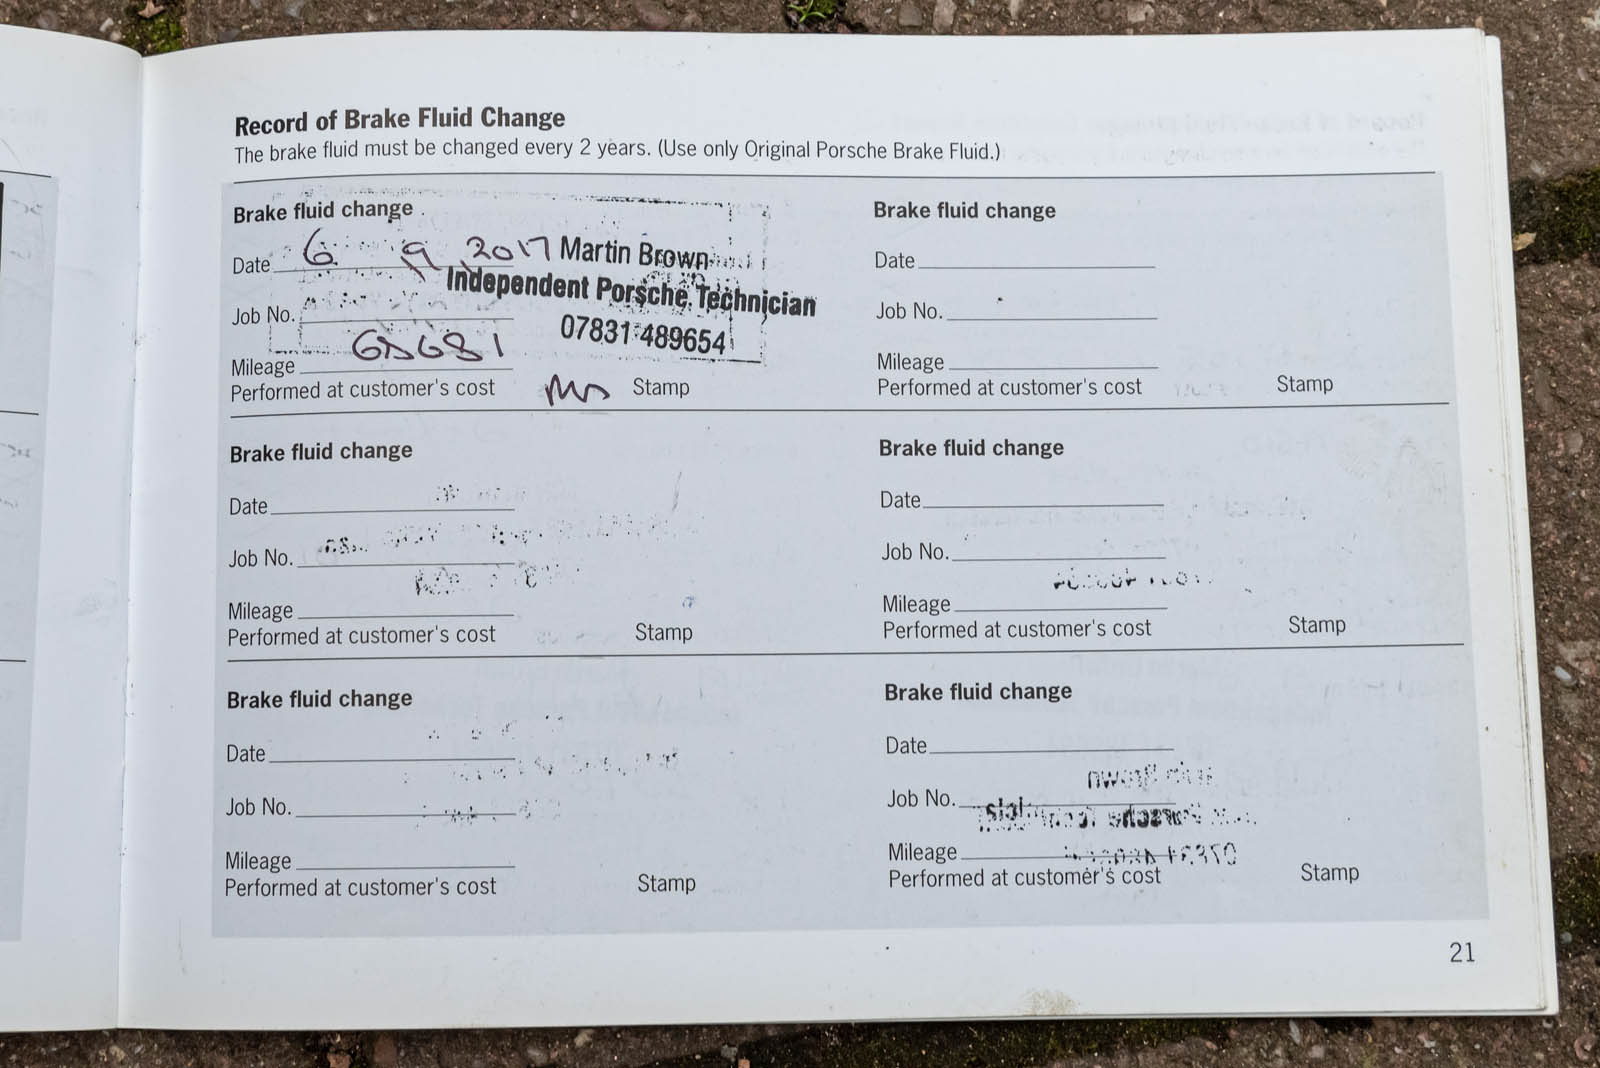 Record of Brake Fluid Change
The brake fluid must be changed every 2 years. (Use only Original Porsche Brake Fluid.)
Brake fluid change
Date 6 9 2017
Martin Brown
Independent Porsche Technician
07831 489654
Job No.
Mileage
Performed at customer's cost
Stamp
Brake fluid change
Date
Job No.
Mileage
Performed at customer's cost
Stamp
Brake fluid change
Date
Job No.
Mileage
Performed at customer's cost
Stamp
Brake fluid change
Date
Job No.
Mileage
Performed at customer's cost
Stamp
Brake fluid change
Date
Job No.
Mileage
Performed at customer's cost
Stamp
Brake fluid change
Date
Job No.
Mileage
Performed at customer's cost
Stamp
21